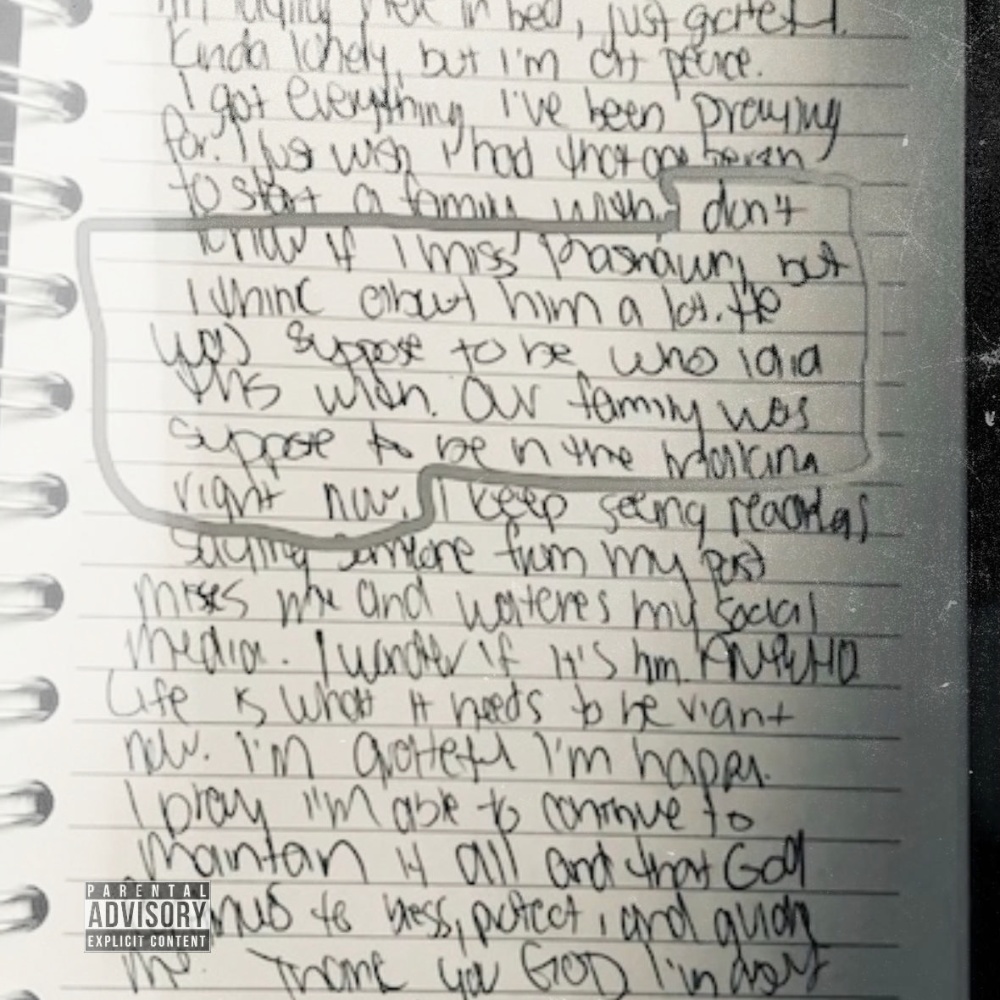 I'm laying here in bed, just grateful.
Kinda lonely, but I'm at peace.
I got everything I've been praying
for. I just wish I had that one person
to start a family with. I don't
know if I miss, but
I think about him a lot. He
was suppose to be who I did
this with. Our family was
suppose to be in the making
right now. I keep seeing
saying someone from my past
misses me and watches my social
media. I wonder if it's him.
Life is what it needs to be right
now. I'm grateful I'm happy.
I pray I'm able to continue to
maintain it all and that God
PARENTAL
ADVISORY
EXPLICIT CONTENT
to bless, protect, and guide
me. Thank you GOD I'm